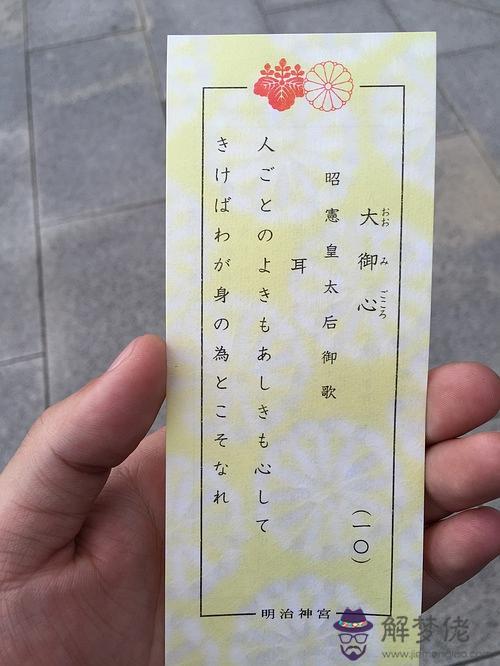 大御心
おおみごころ
（一〇）
昭憲皇太后御歌
耳
人ごとのよきもあしきも心して
きけばわが身の為とこそなれ
明治神宮
解梦佬